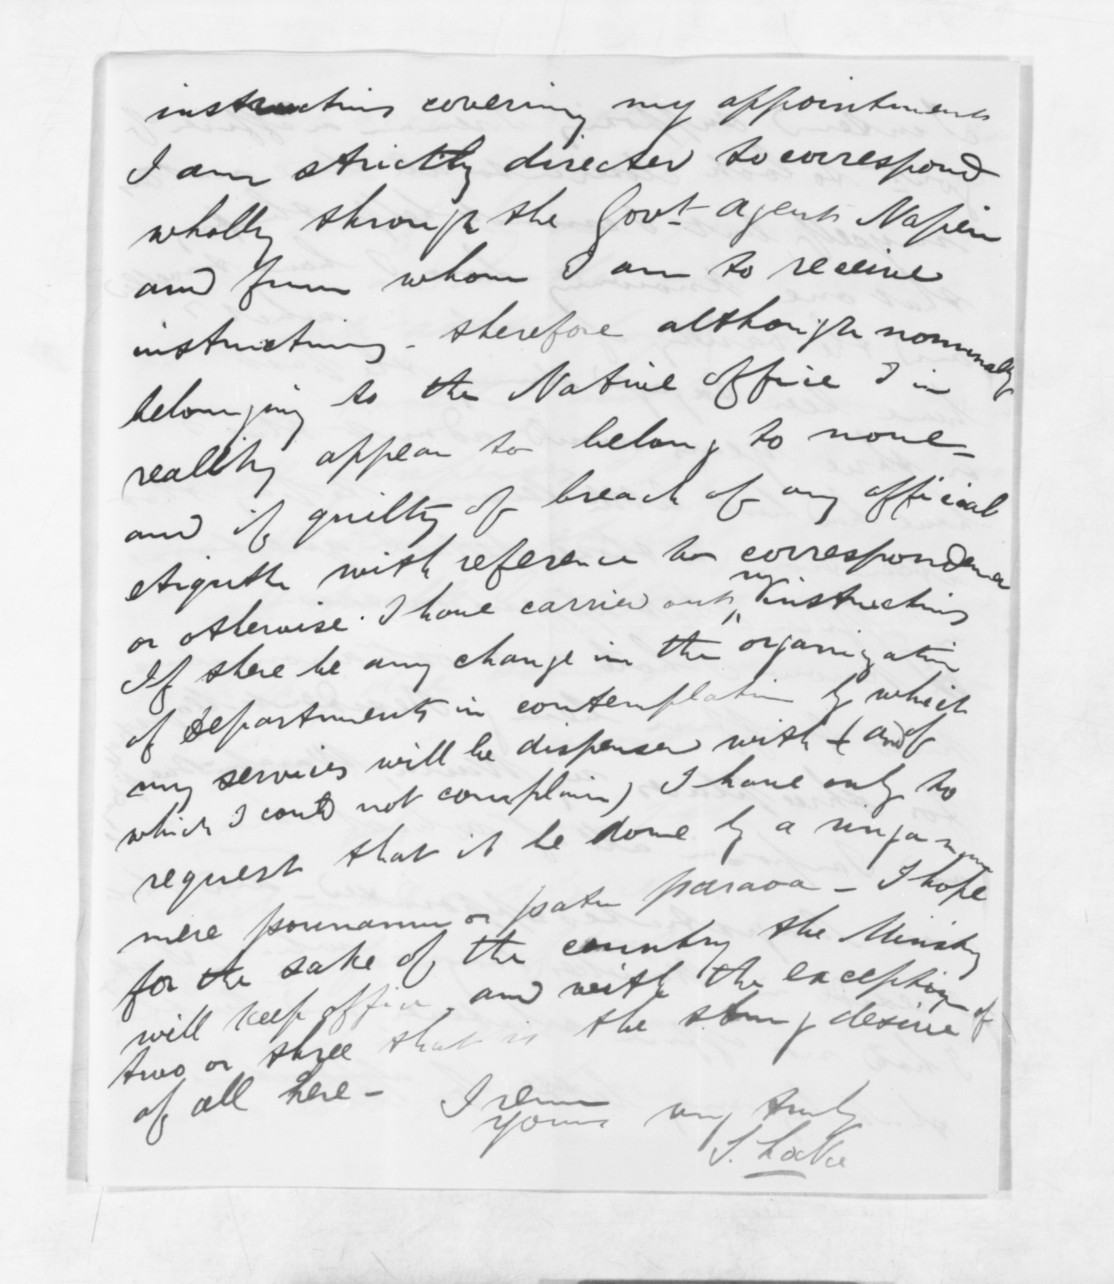 instructions covering my appointments
I am strictly directed to correspond
wholly through the Govt agent Napier
and from whom I am to receive
instructions - therefore although nominally
belonging to the Native office I in
reality appear to belong to none -
and if guilty of breach of any official
etiquette with reference to correspondence
or otherwise. I have carried out my instructions
If there be any change in the organization
of departments in contemplation by which
my services will be dispensed with (and of
which I could not complain) I have only to
request that it be done by a
mere pounamu or patu paraoa - I hope
for the sake of the country the Ministry
will keep office, and with the exception of
two or three that is the strong desire
of all here -
I remain
yours very truly
S. Locke